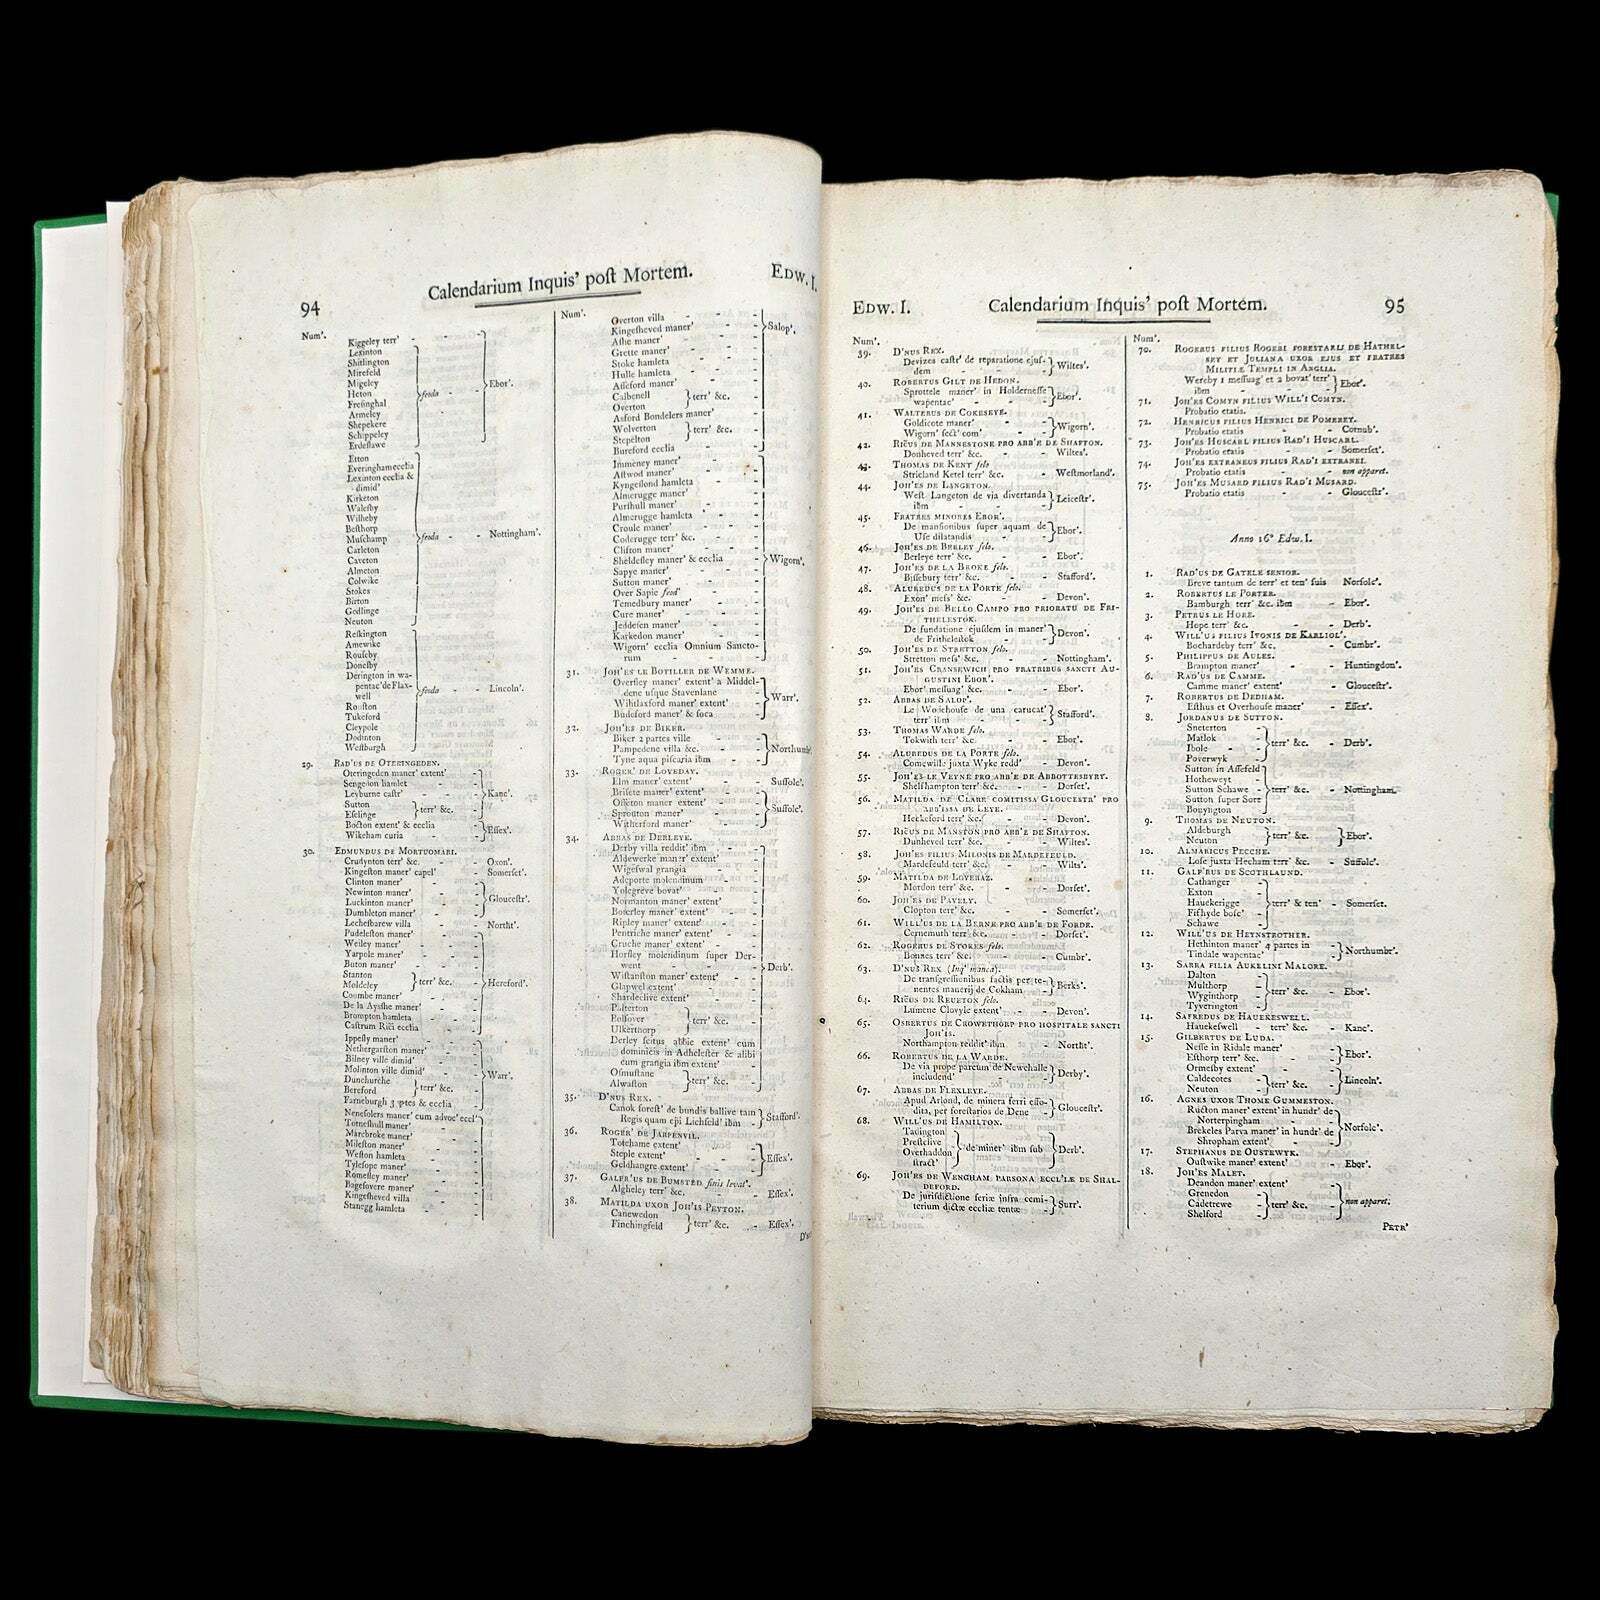 94
Calendarium Inquis' poſt Mortem.
Edw. I.
Num'.
Kiggeley terr'
Lexinton
Shitlington
Mirefeld
Migeley
Heton
Freſinghal
Armeley
Shepekere
Schippeley
Erdeſlawe
feoda
Ebor'.
Etton
Everingham ecclia
Lexinton ecclia &
dimid'
Kirketon
Waleſby
Wilheby
Beſthorp
Muſchamp
Carleton
Caveton
Almeton
Colwike
Stokes
Birton
Gedlinge
Neuton
feoda - - Nottingham'.
Reſkington
Amewike
Rouſeby
Doneſby
Derington in wa-
pentac' de Flax-
well
Roufton
Tukeford
Cleypole
Dodinton
Weſtburgh
feoda - - Lincoln'.
29. Rad'us de Oteringeden.
Oteringeden maner' extent'
Sengedon hamlet
Leyburne caſtr'
Sutton
Eſelinge
terr' &c.
Kanc'.
Boſton extent' & ecclia
Wikeham curia
Eſſex'.
30. Edmundus de Mortuomari.
Crudynton terr' &c. - Oxon'.
Kingeſton maner' capel' - Somerſet'.
Clinton maner'
Newinton maner'
Luckinton maner'
Dumbleton maner'
Glouceſtr'.
Lecheſbarew villa - Northt'.
Pudeleſton maner'
Weiley maner'
Yarpole maner'
Buton maner'
Stanton
Moldeley
terr' &c.
Coumbe maner'
De la Ayſhe maner'
Brompton hamleta
Caſtrum Rici ecclia
Hereford'.
Ippeſly maner'
Nethergarſton maner'
Bilney ville dimid'
Molinton ville dimid'
Dunchurche
Bereford
terr' &c.
Farneburgh 3 ptes & ecclia
Warr'.
Neneſolers maner' cum advoc' eccl'
Totneſhull maner'
Marebroke maner'
Mileſton maner'
Weſton hamleta
Tyleſope maner'
Romeſley maner'
Bageſovere maner'
Kingeſheved villa
Stanegg hamleta
Num'.
Overton villa
Kingeſheved maner'
Aſhe maner'
Grette maner'
Stoke hamleta
Hulle hamleta
Aſſeford maner'
Calbenell
Overton
terr' &c.
Asford Bondelers maner'
Wolverton
Stepelton
terr' &c.
Bureford ecclia
Salop'.
Immeney maner'
Aſtwod maner'
Kyngeſlond hamleta
Almerugge maner'
Purſhull maner'
Almerugge hamleta
Croule maner'
Coderugge terr' &c.
Clifton maner'
Sheldeſley maner' & ecclia
Sapye maner'
Sutton maner'
Over Sapie feod'
Temedbury maner'
Cure maner'
Jeddeſen maner'
Karkedon maner'
Wigorn' ecclia Omnium Sancto-
rum
Wigorn'.
31. Joh'es le Botiller de Wemme.
Overſley maner' extent' a Middel-
dene uſque Stavenlane
Wihtlaxford maner' extent'
Budeford maner' & ſoca
Warr'.
32. Joh'es de Biker.
Biker 2 partes ville
Pampedene villa &c.
Tyne aqua piſcaria ibm
33. Roger' de Loveday.
Elm maner' extent' - Suffolc'.
Briſete maner' extent'
Offeton maner' extent'
Sprouton maner'
Witherford maner'
Suffolc'.
34. Abbas de Derleye.
Derby villa reddit' ibm
Aldewerke maner' extent'
Wigeſwal grangia
Adeporte molendinum
Yolegreve bovat'
Normanton maner' extent'
Boterley maner' extent'
Ripley maner' extent'
Pentriche maner' extent'
Cruche maner' extent'
Horſley molendinum ſuper Der-
went
Wiſtanſton maner' extent'
Glapwel extent'
Shardeclive extent'
Paſterton
Boſſover
Ulkerthorp
terr' &c.
Derley ſcitus abbie extent' cum
dominicis in Adheleſter & alibi
cum grangia ibm extent'
Oſmuſtane
Alwaſton
terr' &c.
Derb'.
35. D'nus Rex.
Canok foreſt' de bundis ballive tam
Regis quam epi Lichfeld' ibm
Stafford'.
36. Roger' de Jarpenvil.
Totchame extent'
Steple extent'
Geldhangre extent'
Eſſex'.
37. Galfr'us de Bumsted finis levat'.
Algheley terr' &c. - Eſſex'.
38. Matilda uxor Joh'is Peyton.
Canewedon
Finchingfeld
terr' &c. - Eſſex'.
Edw. I.
Calendarium Inquis' poſt Mortem.
95
Num'.
39. D'nus Rex.
Devizes caſtr' de reparatione ejuſ-
dem
Wiltes'.
40. Robertus Gilt de Hedon.
Sprottele maner' in Holderneſſe
wapentac'
Ebor'.
41. Walterus de Cokeseye.
Goldicote maner'
Wigorn' ſect' com'
Wigorn'.
42. Ric̃us de Mannestone pro abb'e de Shafton.
Donheved terr' &c. - Wiltes'.
43. Thomas de Kent felo
Stricland Ketel terr' &c. - Weſtmorland'.
44. Joh'es de Langeton.
Weſt Langeton de via divertanda
ibm
Leiceſtr'.
45. Fratres minores Ebor'.
De manſionibus ſuper aquam de
Uſe dilatandis
Ebor'.
46. Joh'es de Berley felo.
Berleye terr' &c. - Ebor'.
47. Joh'es de la Broke felo.
Biſſebury terr' &c. - Stafford'.
48. Aluredus de la Porte felo.
Exon' meſs' &c. - Devon'.
49. Joh'es de Bello Campo pro prioratu de Fri-
thelestok.
De fundatione ejuſdem in maner'
de Fritheleſtok
Devon'.
50. Joh'es de Stretton felo.
Stretton meſs' &c. - Nottingham'.
51. Joh'es Cransewich pro fratribus sancti Au-
gustini Ebor'.
Ebor' meſſuag' &c. - Ebor'.
52. Abbas de Salop'.
Le Wodehouſe de una carucat'
terr' ibm
Stafford'.
53. Thomas Warde felo.
Tokwith terr' &c. - Ebor'.
54. Aluredus de la Porte felo.
Comewille juxta Wyke redd' - Devon'.
55. Joh'es le Veyne pro abb'e de Abbottesbyry.
Shelfhampton terr' &c. - Dorſet'.
56. Matilda de Clare comitissa Gloucestr' pro
abb'issa de Leye.
Heckeford terr' &c. - Devon'.
57. Ric̃us de Manston pro abb'e de Shafton.
Dunheved terr' &c. - Wiltes'.
58. Joh'es filius Milonis de Mardefeuld.
Mardefeuld terr' &c. - Wilts'.
59. Matilda de Loveraz.
Mordon terr' &c. - Dorſet'.
60. Joh'es de Pavely.
Clopton terr' &c. - Somerſet'.
61. Will'us de la Berne pro abb'e de Forde.
Cernemuth terr' &c. - Dorſet'.
62. Rogerus de Stokes felo.
Bounes terr' &c. - Cumbr'.
63. D'nus Rex (Inq' manca).
De tranſgreſſionibus factis per te-
nentes manerij de Cokham
Berks'.
64. Ric̃us de Reueton felo.
Lumene Clavyle extent' - Devon'.
65. Osbertus de Crowethorp pro hospitale sancti
Joh'is.
Northampton reddit' ibm - Northt'.
66. Robertus de la Warde.
De via prope parcum de Newehalle
includend'
Derby'.
67. Abbas de Flexleye.
Apud Arlond, de minera ferri effo-
dita, per foreſtarios de Dene
Glouceſtr'.
68. Will'us de Hamilton.
Tadington
Preſtclive
Overhaddon
ſtract'
de miner' ibm ſub
Derb'.
69. Joh'es de Wengham parsona eccl'iæ de Shal-
deford.
De juriſdictione feriæ infra cemi-
terium dictæ eccliæ tentæ
Surr'.
Num'.
70. Rogerus filius Rogeri forestarij de Hathel-
sey et Juliana uxor ejus et fratres
Militiæ Templi in Anglia.
Wereby 1 meſſuag' et 2 bovat' terr'
ibm
Ebor'.
71. Joh'es Comyn filius Will'i Comyn.
Probatio etatis.
72. Henricus filius Henrici de Pomerey.
Probatio etatis - Cornub'.
73. Joh'es Huscarl filius Rad'i Huscarl.
Probatio etatis - Somerſet'.
74. Joh'es extraneus filius Rad'i extranei.
Probatio etatis - non apparet.
75. Joh'es Musard filius Rad'i Musard.
Probatio etatis - Glouceſtr'.
Anno 16° Edw. I.
1. Rad'us de Gatele senior.
Breve tantum de terr' et ten' ſuis Norfolc'.
2. Robertus le Porter.
Bamburgh terr' &c. ibm - Ebor'.
3. Petrus le Hore.
Hope terr' &c. - Derb'.
4. Will'us filius Ivonis de Karliol'.
Bochardeby terr' &c. - Cumbr'.
5. Philippus de Aules.
Brampton maner' - Huntingdon'.
6. Rad'us de Camme.
Camme maner' extent' - Glouceſtr'.
7. Robertus de Dedham.
Eſthus et Overhouſe maner' - Eſſex'.
8. Jordanus de Sutton.
Sneterton
Matlok
Ibole
Poverwyk
terr' &c. - Derb'.
Sutton in Aſſefeld
Hotheweyt
Sutton Schawe
Sutton ſuper Sore
Bonyngton
terr' &c. - Nottingham.
9. Thomas de Neuton.
Aldeburgh
Neuton
terr' &c.
Ebor'.
10. Almaricus Pecche.
Loſe juxta Hecham terr' &c. - Suffolc'.
11. Galf'rus de Scothlaund.
Cathanger
Exton
Hauekerigge
Fifhyde boſc'
Schawe
terr' & ten' - Somerſet.
12. Will'us de Heynstrother.
Hethinton maner' 4 partes in
Tindale wapentac'
Northumbr'.
13. Sarra filia Aukelini Malore.
Dalton
Multhorp
Wyginthorp
Tyverington
terr' &c. - Ebor'.
14. Safredus de Hauekeswell.
Hauekeſwell - terr' &c. - Kanc'.
15. Gilbertus de Luda.
Neſſe in Ridale maner'
Eſthorp terr' &c.
Ebor'.
Ormeſby extent'
Caldecotes
Neuton
terr' &c.
Lincoln'.
16. Agnes uxor Thome Gummeston.
Ruſton maner' extent' in hundr' de
Norterpingham
Brekeles Parva maner' in hundr' de
Shropham extent'
Norfolc'.
17. Stephanus de Oustewyk.
Ouſtwike maner' extent' - Ebor'.
18. Joh'es Malet.
Deandon maner' extent'
Grenedon
Cadetrewe
Shelford
terr' &c.
non apparet.
Petr'